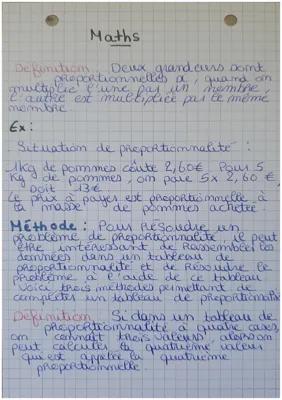 Maths
Définition Deux grandeurs sont
proportionnelles quand on
multiplie l'une par un nombre,
l'autre est multipliée par le même
nombre
Ex :
Situation de proportionnalité :
1kg de pommes coûte 2,60€ Pour 5
kg de pommes, on paie 5x 2,60 €,
soit 13€
Le prix à payer est proportionnelle à
la masse de pommes achetée.
Méthode : Pour résoudre un
problème de proportionnalité, il peut
être intéressant de rassembler les
données dans un tableau de
proportionnalité et de résoudre le
problème à l'aide de ce tableau
Voici trois méthodes permettant de
compléter un tableau de proportionnalité
Définition Si dans un tableau de
proportionnalité à quatre cases,
on connaît trois valeurs, alors on
peut calculer la quatrième valeur
qui est appelée la quatrième
proportionnelle.